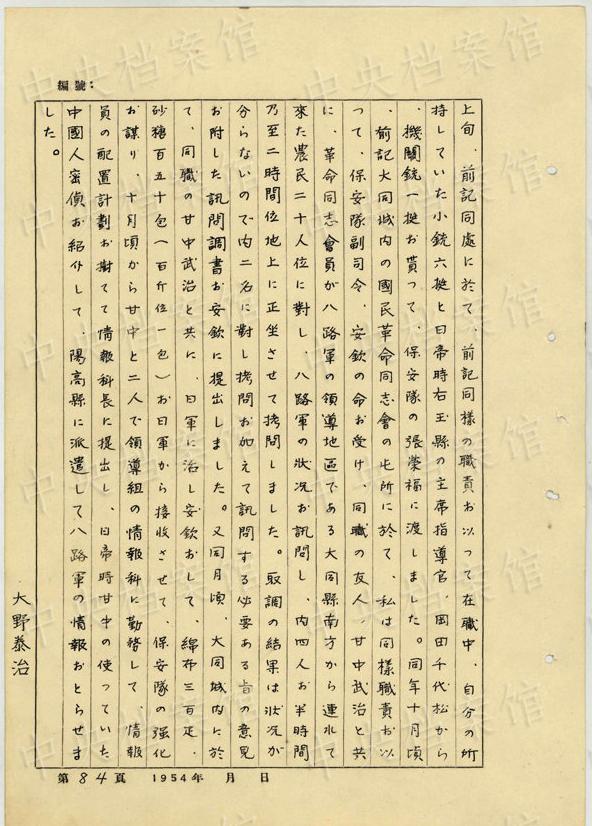 編號：
上旬、前記同處に於て、前記同様の職責お以つて在職中、自分の所
持していた小銃六挺と日帝時右玉縣の主席指導官、岡田千代松から
、機關銃一挺お貰つて、保安隊の張榮福に渡しました。同年十月頃
、前記大同城内の國民革命同志會の屯所に於て、私は同様職責お以
つて、保安隊副司令、安欽の命お受け、同職の友人、甘中武治と共
に、革命同志會員が八路軍の領導地區である大同縣南方から連れて
來た農民二十人位に対し、八路軍の狀況お訊問し、内四人お半時間
乃至二時間位地上に正坐させて拷問しました。取調の結果は狀況が
分らないので内二名に対し拷問お加えて訊問する必要ある旨の意見
お附した訊問調書お安欽に提出しました。又同月頃、大同城内に於
て、同職の甘中武治と共に、日軍に治し安欽おして、綿布三百疋、
砂糖百五十包（一百斤位一包）お日軍から接收させて、保安隊の強化
お謀り、十月頃から甘中と二人で領導組の情報科に勤務して、情報
員の配置計劃お樹てて情報科長に提出し、日帝時甘中の使つていた
中國人密偵お紹介して、陽高縣に派遣して八路軍の情報おとらせま
した。
大野泰治
第84頁 1954年 月 日
中央档案馆